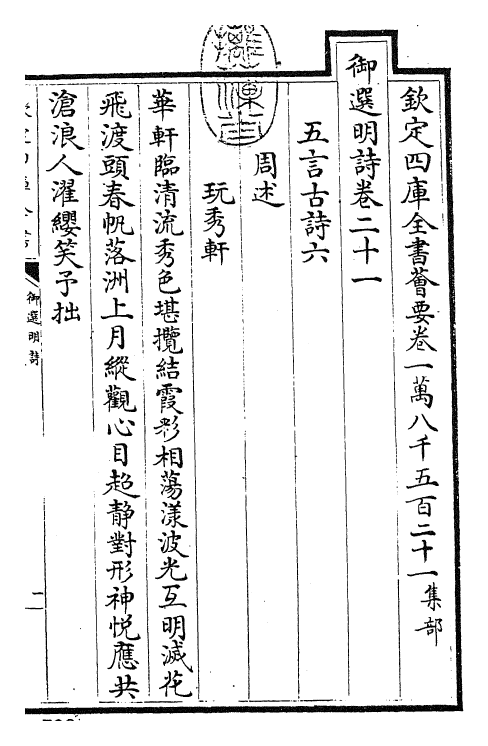 欽定四庫全書薈要卷一萬八千五百二十一集部
御選明詩卷二十一
五言古詩六
周述
玩秀軒
華軒臨清流秀色堪攬結霞彩相蕩漾波光互明滅花
飛渡頭春帆落洲上月縱觀心目超靜對形神悅應共
滄浪人濯纓笑予拙
御選明詩
二